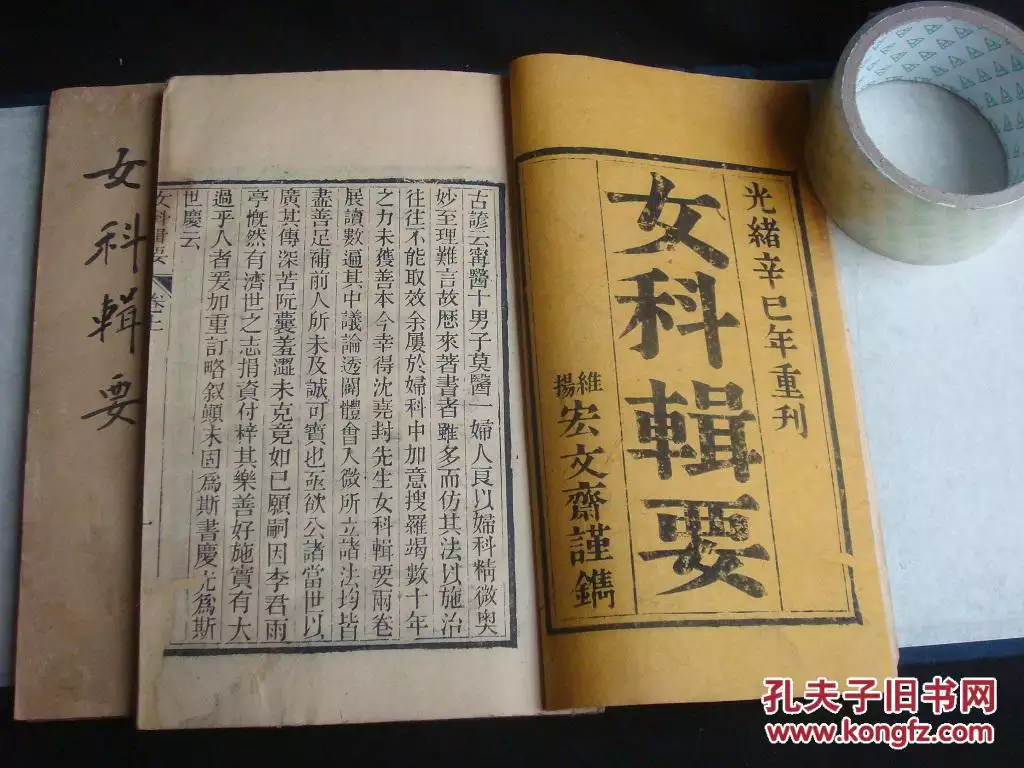 光緒辛巳年重刊
女科輯要
維揚宏文齋謹鐫
古諺云甯醫十男子莫醫一婦人良以婦科精微奧
妙至理難言故歷來著書者雖多而仿其法以施治
往往不能取效余屢於婦科中加意搜羅竭數十年
之力未獲善本今幸得沈堯封先生女科輯要兩卷
展讀數過其中議論透闢體會入微所立諸法均皆
盡善足補前人所未及誠可寶也亟欲公諸當世以
廣其傳深苦阮囊羞澀未克竟如己願嗣因李君雨
亭慨然有濟世之志捐資付梓其樂善好施實有大
過乎人者爰加重訂略叙顛末固爲斯書慶尤爲斯
世慶云
女科輯要 卷上
女科輯要
孔夫子旧书网
www.kongfz.com